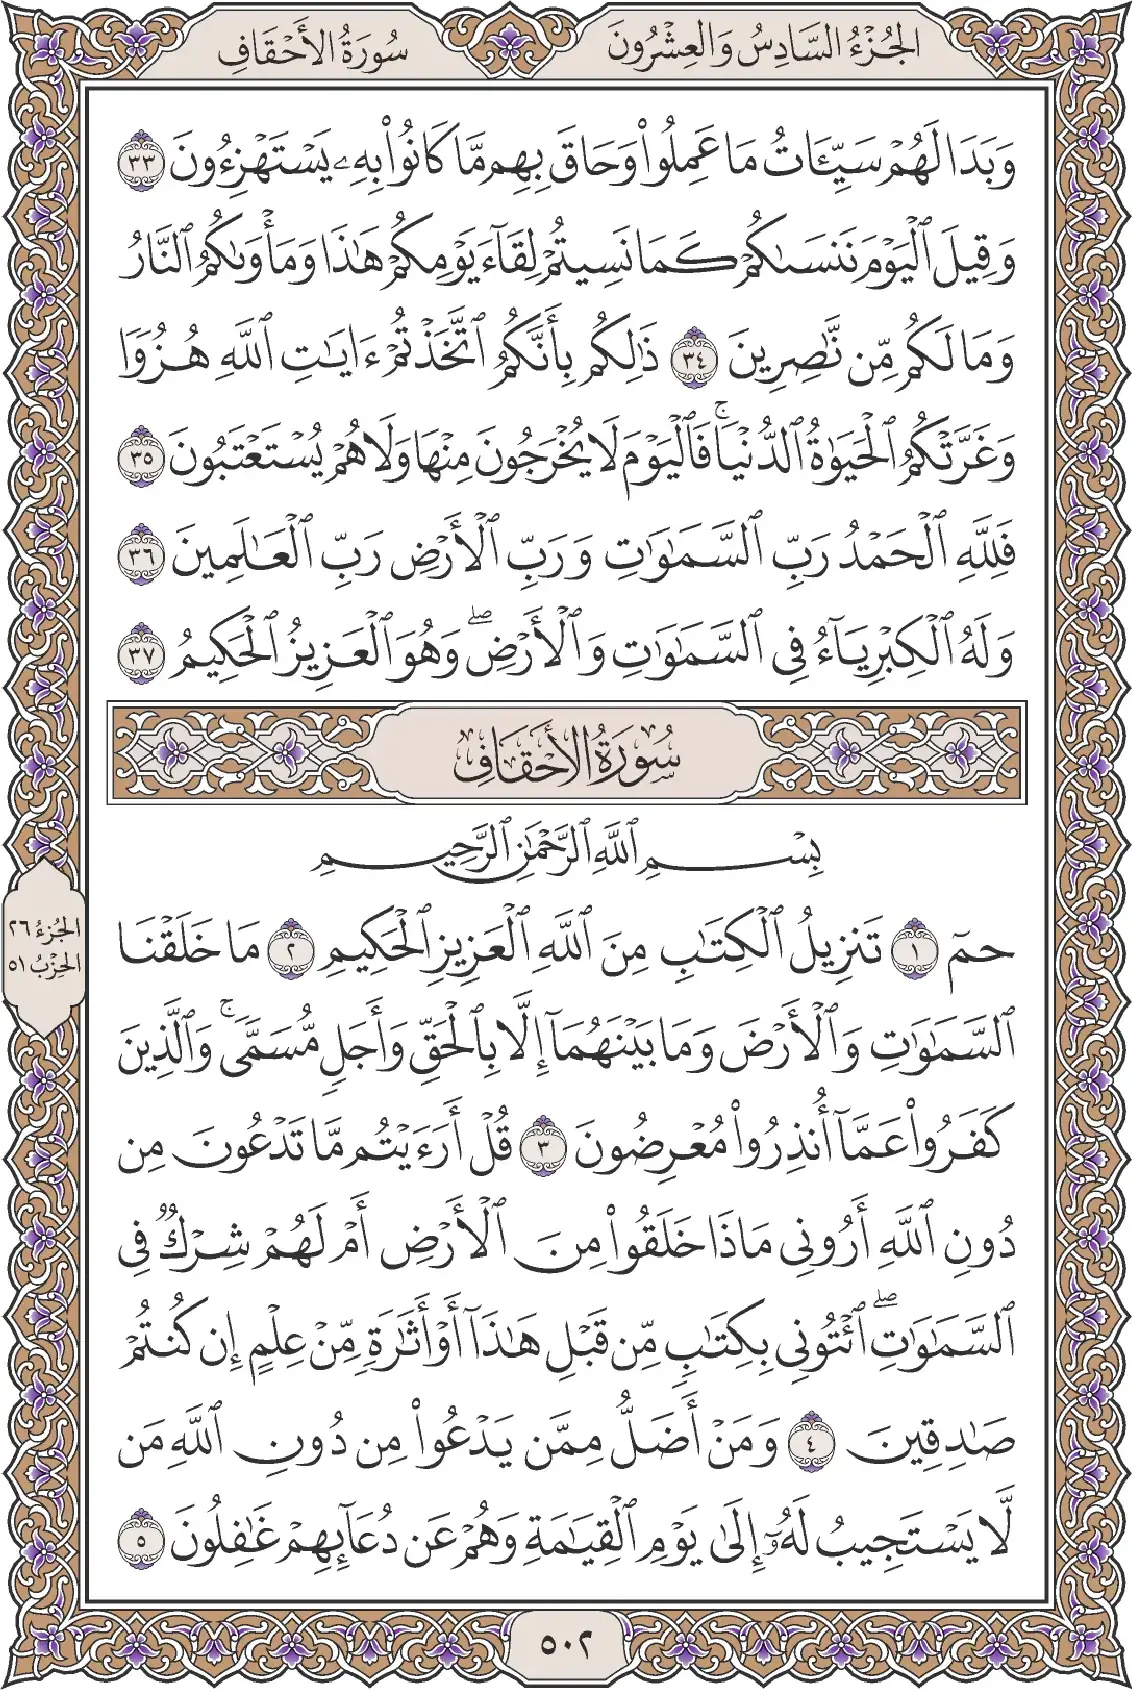 الجُزْءُ السَّادِسُ وَالعِشْرُونَ
سُورَةُ الأَحْقَافِ
وَبَدَا لَهُمْ سَيِّـَٔاتُ مَا عَمِلُوا۟ وَحَاقَ بِهِم مَّا كَانُوا۟ بِهِۦ يَسْتَهْزِءُونَ ٣٣
وَقِيلَ ٱلْيَوْمَ نَنسَىٰكُمْ كَمَا نَسِيتُمْ لِقَآءَ يَوْمِكُمْ هَٰذَا وَمَأْوَىٰكُمُ ٱلنَّارُ
وَمَا لَكُم مِّن نَّٰصِرِينَ ٣٤ ذَٰلِكُم بِأَنَّكُمُ ٱتَّخَذْتُمْ ءَايَٰتِ ٱللَّهِ هُزُوًا
وَغَرَّتْكُمُ ٱلْحَيَوٰةُ ٱلدُّنْيَا ۚ فَٱلْيَوْمَ لَا يُخْرَجُونَ مِنْهَا وَلَا هُمْ يُسْتَعْتَبُونَ ٣٥
فَلِلَّهِ ٱلْحَمْدُ رَبِّ ٱلسَّمَٰوَٰتِ وَرَبِّ ٱلْأَرْضِ رَبِّ ٱلْعَٰلَمِينَ ٣٦
وَلَهُ ٱلْكِبْرِيَآءُ فِى ٱلسَّمَٰوَٰتِ وَٱلْأَرْضِ ۖ وَهُوَ ٱلْعَزِيزُ ٱلْحَكِيمُ ٣٧
سُورَةُ الأَحْقَافِ
بِسْمِ ٱللَّهِ ٱلرَّحْمَٰنِ ٱلرَّحِيمِ
حمٓ ١ تَنزِيلُ ٱلْكِتَٰبِ مِنَ ٱللَّهِ ٱلْعَزِيزِ ٱلْحَكِيمِ ٢ مَا خَلَقْنَا
ٱلسَّمَٰوَٰتِ وَٱلْأَرْضَ وَمَا بَيْنَهُمَآ إِلَّا بِٱلْحَقِّ وَأَجَلٍ مُّسَمًّى ۚ وَٱلَّذِينَ
كَفَرُوا۟ عَمَّآ أُنذِرُوا۟ مُعْرِضُونَ ٣ قُلْ أَرَءَيْتُم مَّا تَدْعُونَ مِن
دُونِ ٱللَّهِ أَرُونِى مَاذَا خَلَقُوا۟ مِنَ ٱلْأَرْضِ أَمْ لَهُمْ شِرْكٌ فِى
ٱلسَّمَٰوَٰتِ ۖ ٱئْتُونِى بِكِتَٰبٍ مِّن قَبْلِ هَٰذَآ أَوْ أَثَٰرَةٍ مِّنْ عِلْمٍ إِن كُنتُمْ
صَٰدِقِينَ ٤ وَمَنْ أَضَلُّ مِمَّن يَدْعُوا۟ مِن دُونِ ٱللَّهِ مَن
لَّا يَسْتَجِيبُ لَهُۥٓ إِلَىٰ يَوْمِ ٱلْقِيَٰمَةِ وَهُمْ عَن دُعَآئِهِمْ غَٰفِلُونَ ٥
الجُزءُ ٢٦
الحِزْبُ ٥١
٥٠٢